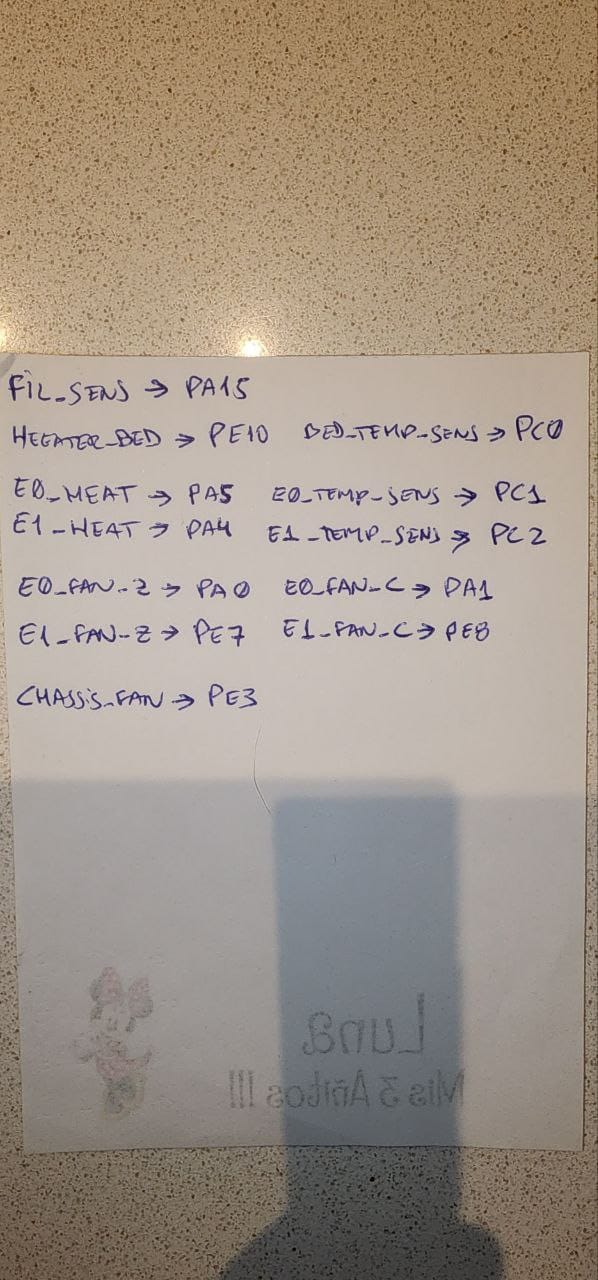 FIL_SENS → PA15
HEEATER_BED → PE10 BED_TEMP_SENS → PC0
E0_HEAT → PA5 E0_TEMP_SENS → PC1
E1_HEAT → PA4 E1_TEMP_SENS → PC2
E0_FAN_Z → PA0 E0_FAN_C → PA1
E1_FAN_Z → PE7 E1_FAN_C → PE8
CHASSIS_FAN → PE3
Luna
Mis 3 Añitos !!!